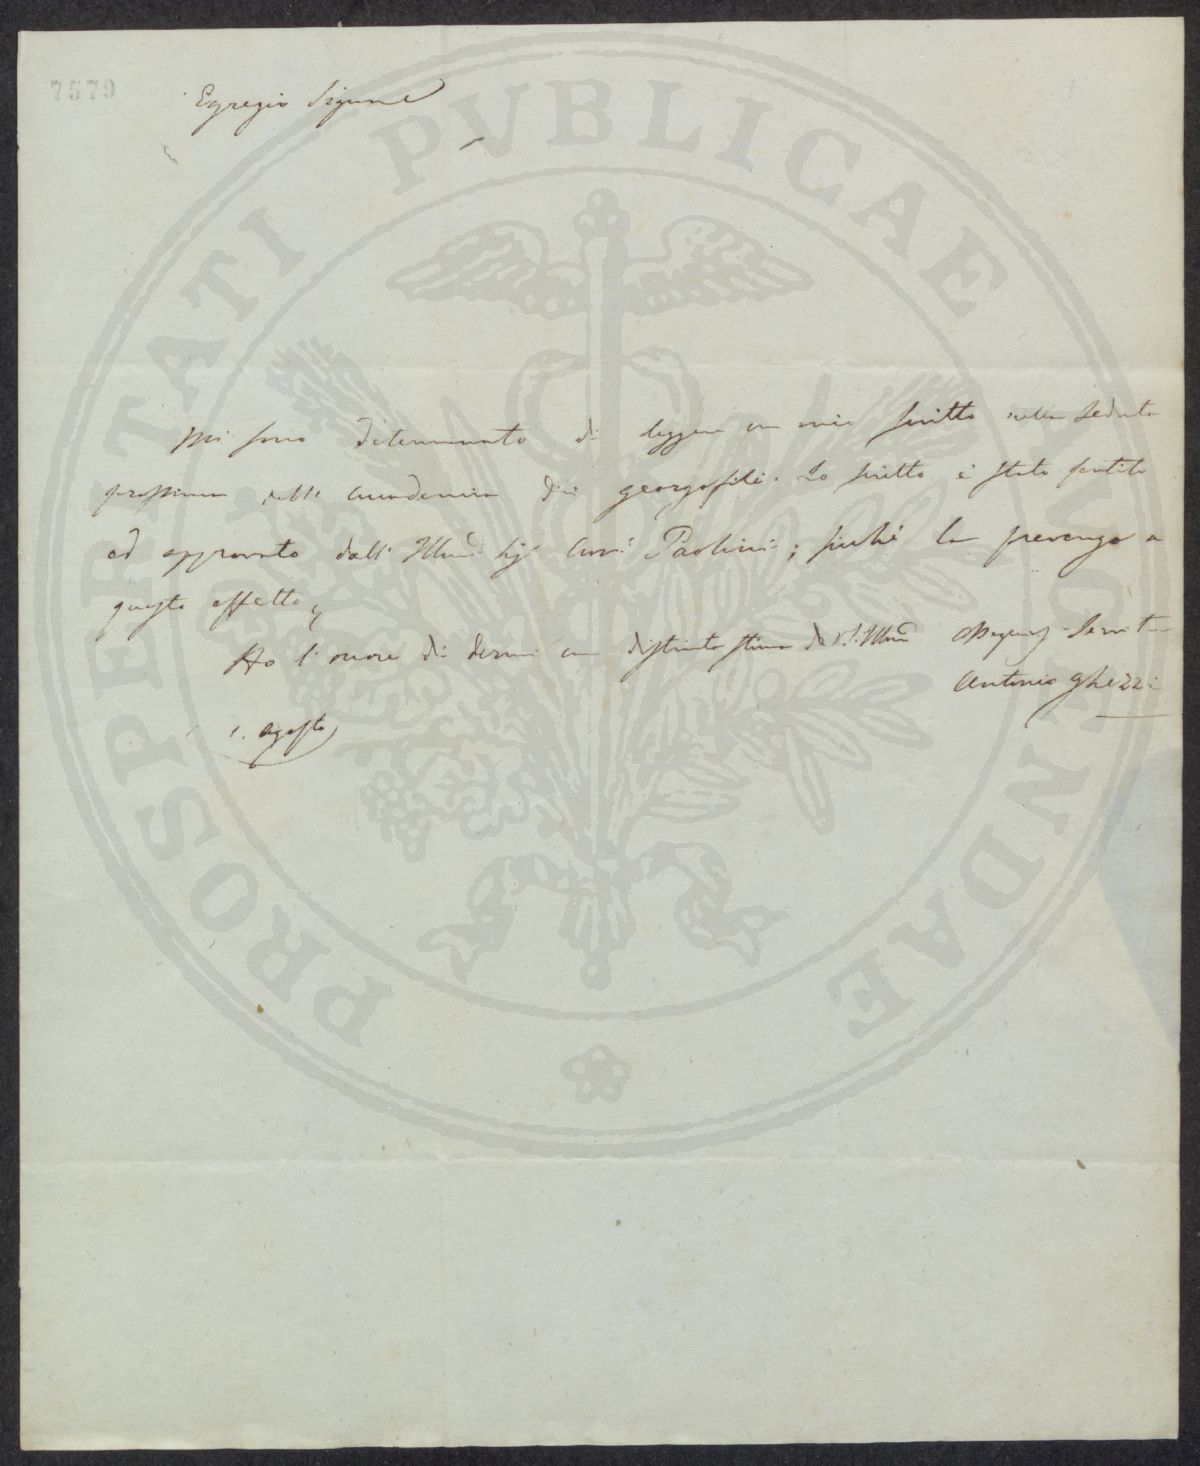 7579
Egregio Signore
PROSPERITATI PUBLICAE AUGENDAE
Mi sono determinato di leggere un mio scritto nella seduta
prossima dell' Accademia dei georgofili. Lo scritto è stato sentito
ed approvato dall' Illmo Sig. Avv. Paolini; sicché la prevengo a
questo effetto,
Ho l' onore di dirmi con distinta stima di V.S. Illma Obbligmo Servit
Antonio Ghezzi
1. Agosto